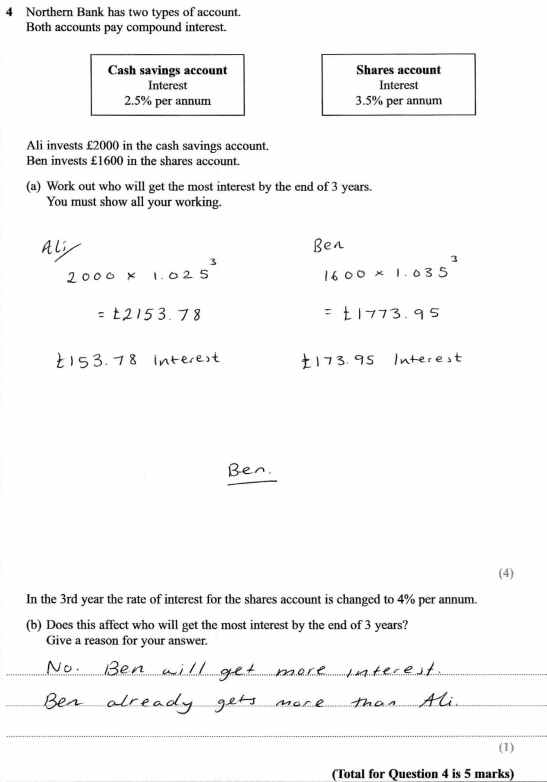 4 Northern Bank has two types of account.
Both accounts pay compound interest.
Cash savings account
Interest
2.5% per annum
Shares account
Interest
3.5% per annum
Ali invests £2000 in the cash savings account.
Ben invests £1600 in the shares account.
(a) Work out who will get the most interest by the end of 3 years.
You must show all your working.
Ali
2000 × 1.025³
= £2153.78
£153.78 Interest
Ben
1600 × 1.035³
= £1773.95
£173.95 Interest
Ben.
(4)
In the 3rd year the rate of interest for the shares account is changed to 4% per annum.
(b) Does this affect who will get the most interest by the end of 3 years?
Give a reason for your answer.
No. Ben will get more interest.
Ben already gets more than Ali.
(1)
(Total for Question 4 is 5 marks)